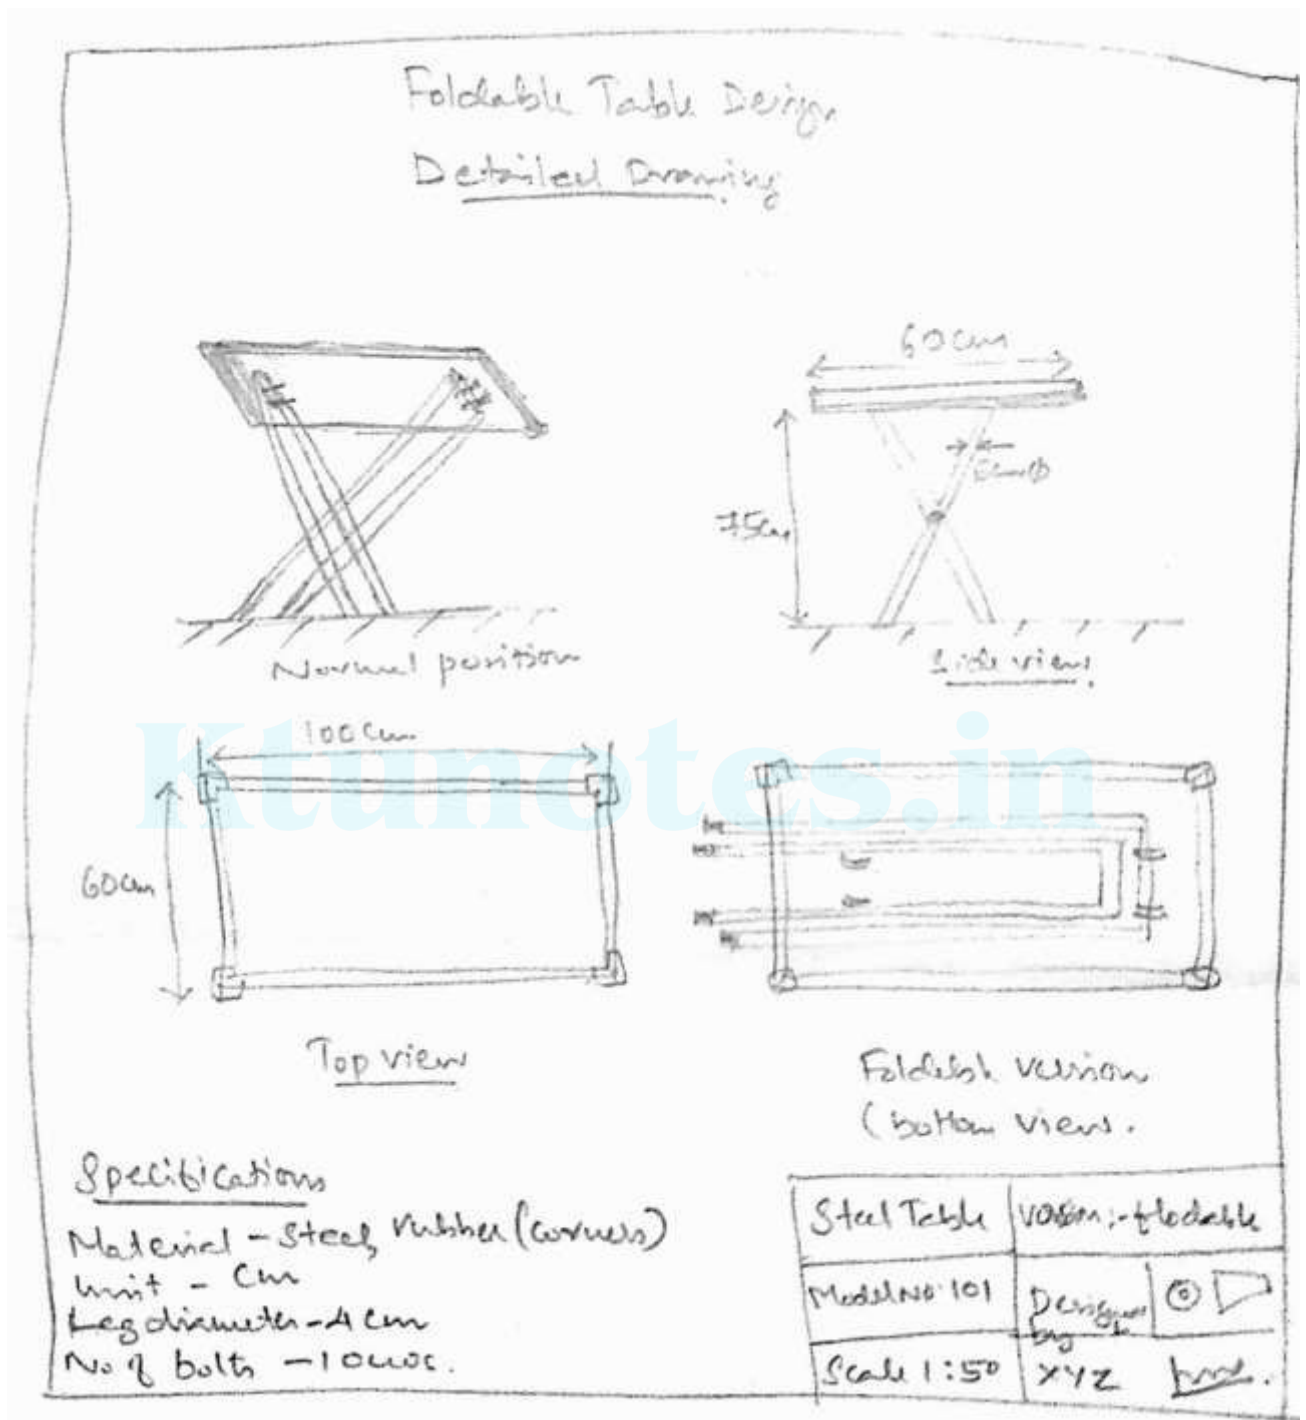 Foldable Table Design
Detailed Drawing
60cm
75cm
Normal position
Side view
100cm
60cm
Ktunotes.in
Top view
Foldable version
(bottom view.
Specifications
Material - Steel, rubber (corners)
Unit - Cm
Leg diameter - 4 cm
No of bolts - 10
Steel Table
flodable
Model No: 101
Designed
by
Scale 1:50
XYZ